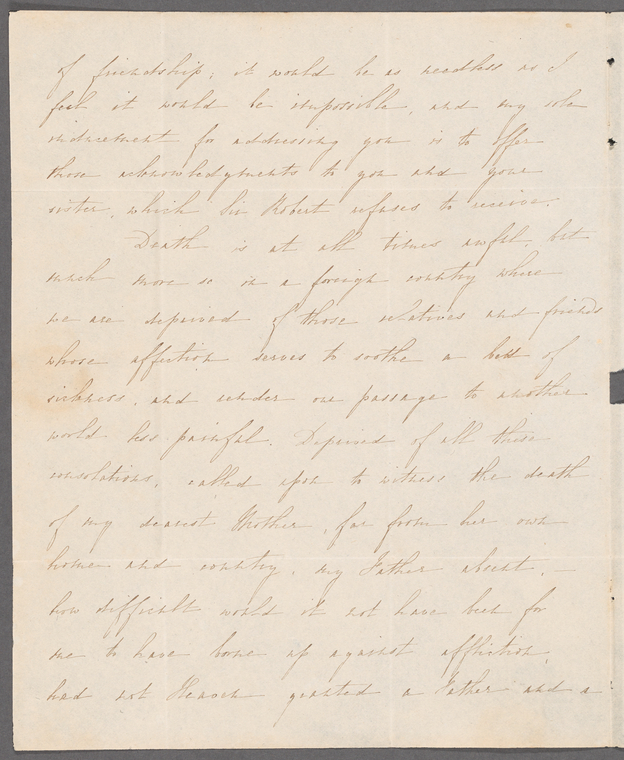 of friendship; it would be as needless as I
feel it would be impossible, and my sole
inducement for addressing you is to offer
those acknowledgments to you and your
sister, which Sir Robert refuses to receive.
Death is at all times awful, but
much more so in a foreign country where
we are deprived of those relatives and friends
whose affection serves to soothe a bed of
sickness, and render one passage to another
world less painful. Deprived of all these
consolations, called upon to witness the death
of my dearest Mother, far from her own
home and country, my Father absent, —
how difficult would it not have been for
me to have borne up against affliction,
had not Heaven granted a Father and a